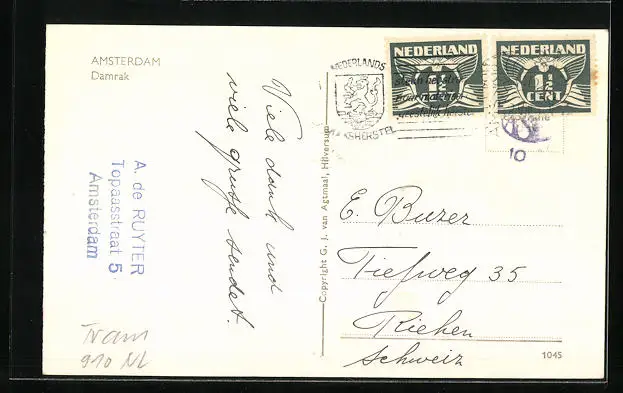 AMSTERDAM
Damrak
Viele dank und
viele grüße sendet.
A. de RUYTER
Topaasstraat 5
Amsterdam
Tram
910 NL
Copyright G. J. van Agtmaal, Hilversum
NEDERLANDS
VOLKSHERSTEL
NEDERLAND
1½
NEDERLAND
1½
CENT
10
E. Buzer
Tiefweg 35
Riehen
Schweiz
1045